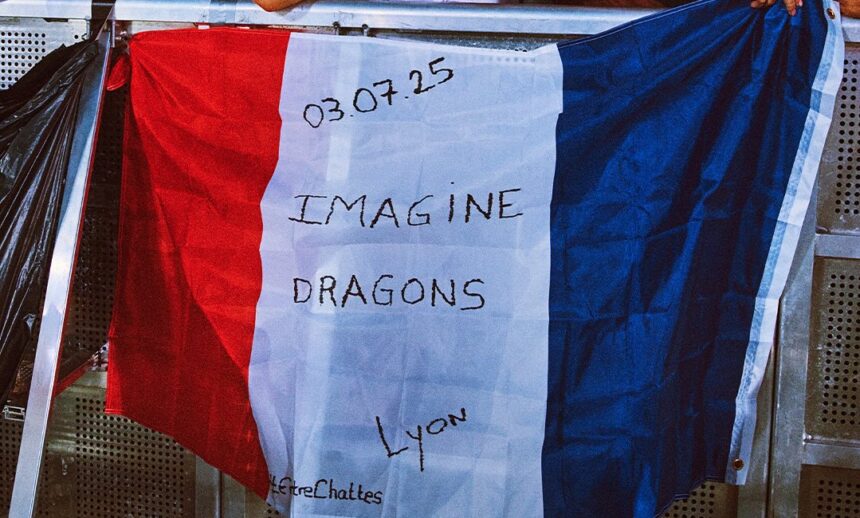 03.07.25
IMAGiNE
DRAGONS
Lyon
EntreChattes